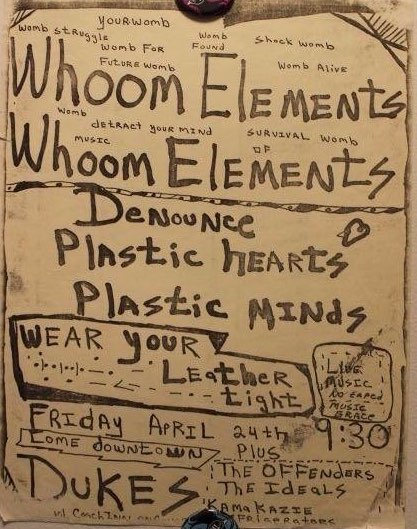 yourwomb
womb struggle
Womb For
Future womb
Womb
Found
Shock womb
Womb Alive
Whoom Elements
Womb
detract your mind
music
survival womb
of
Whoom Elements
Denounce
Plastic hearts
Plastic Minds
Wear your
Leather
tight
Live
Music
No taped
Music
Friday April 24th 9:30
Come downtown Plus
Dukes
The Offenders
The Ideals
Kamakazie